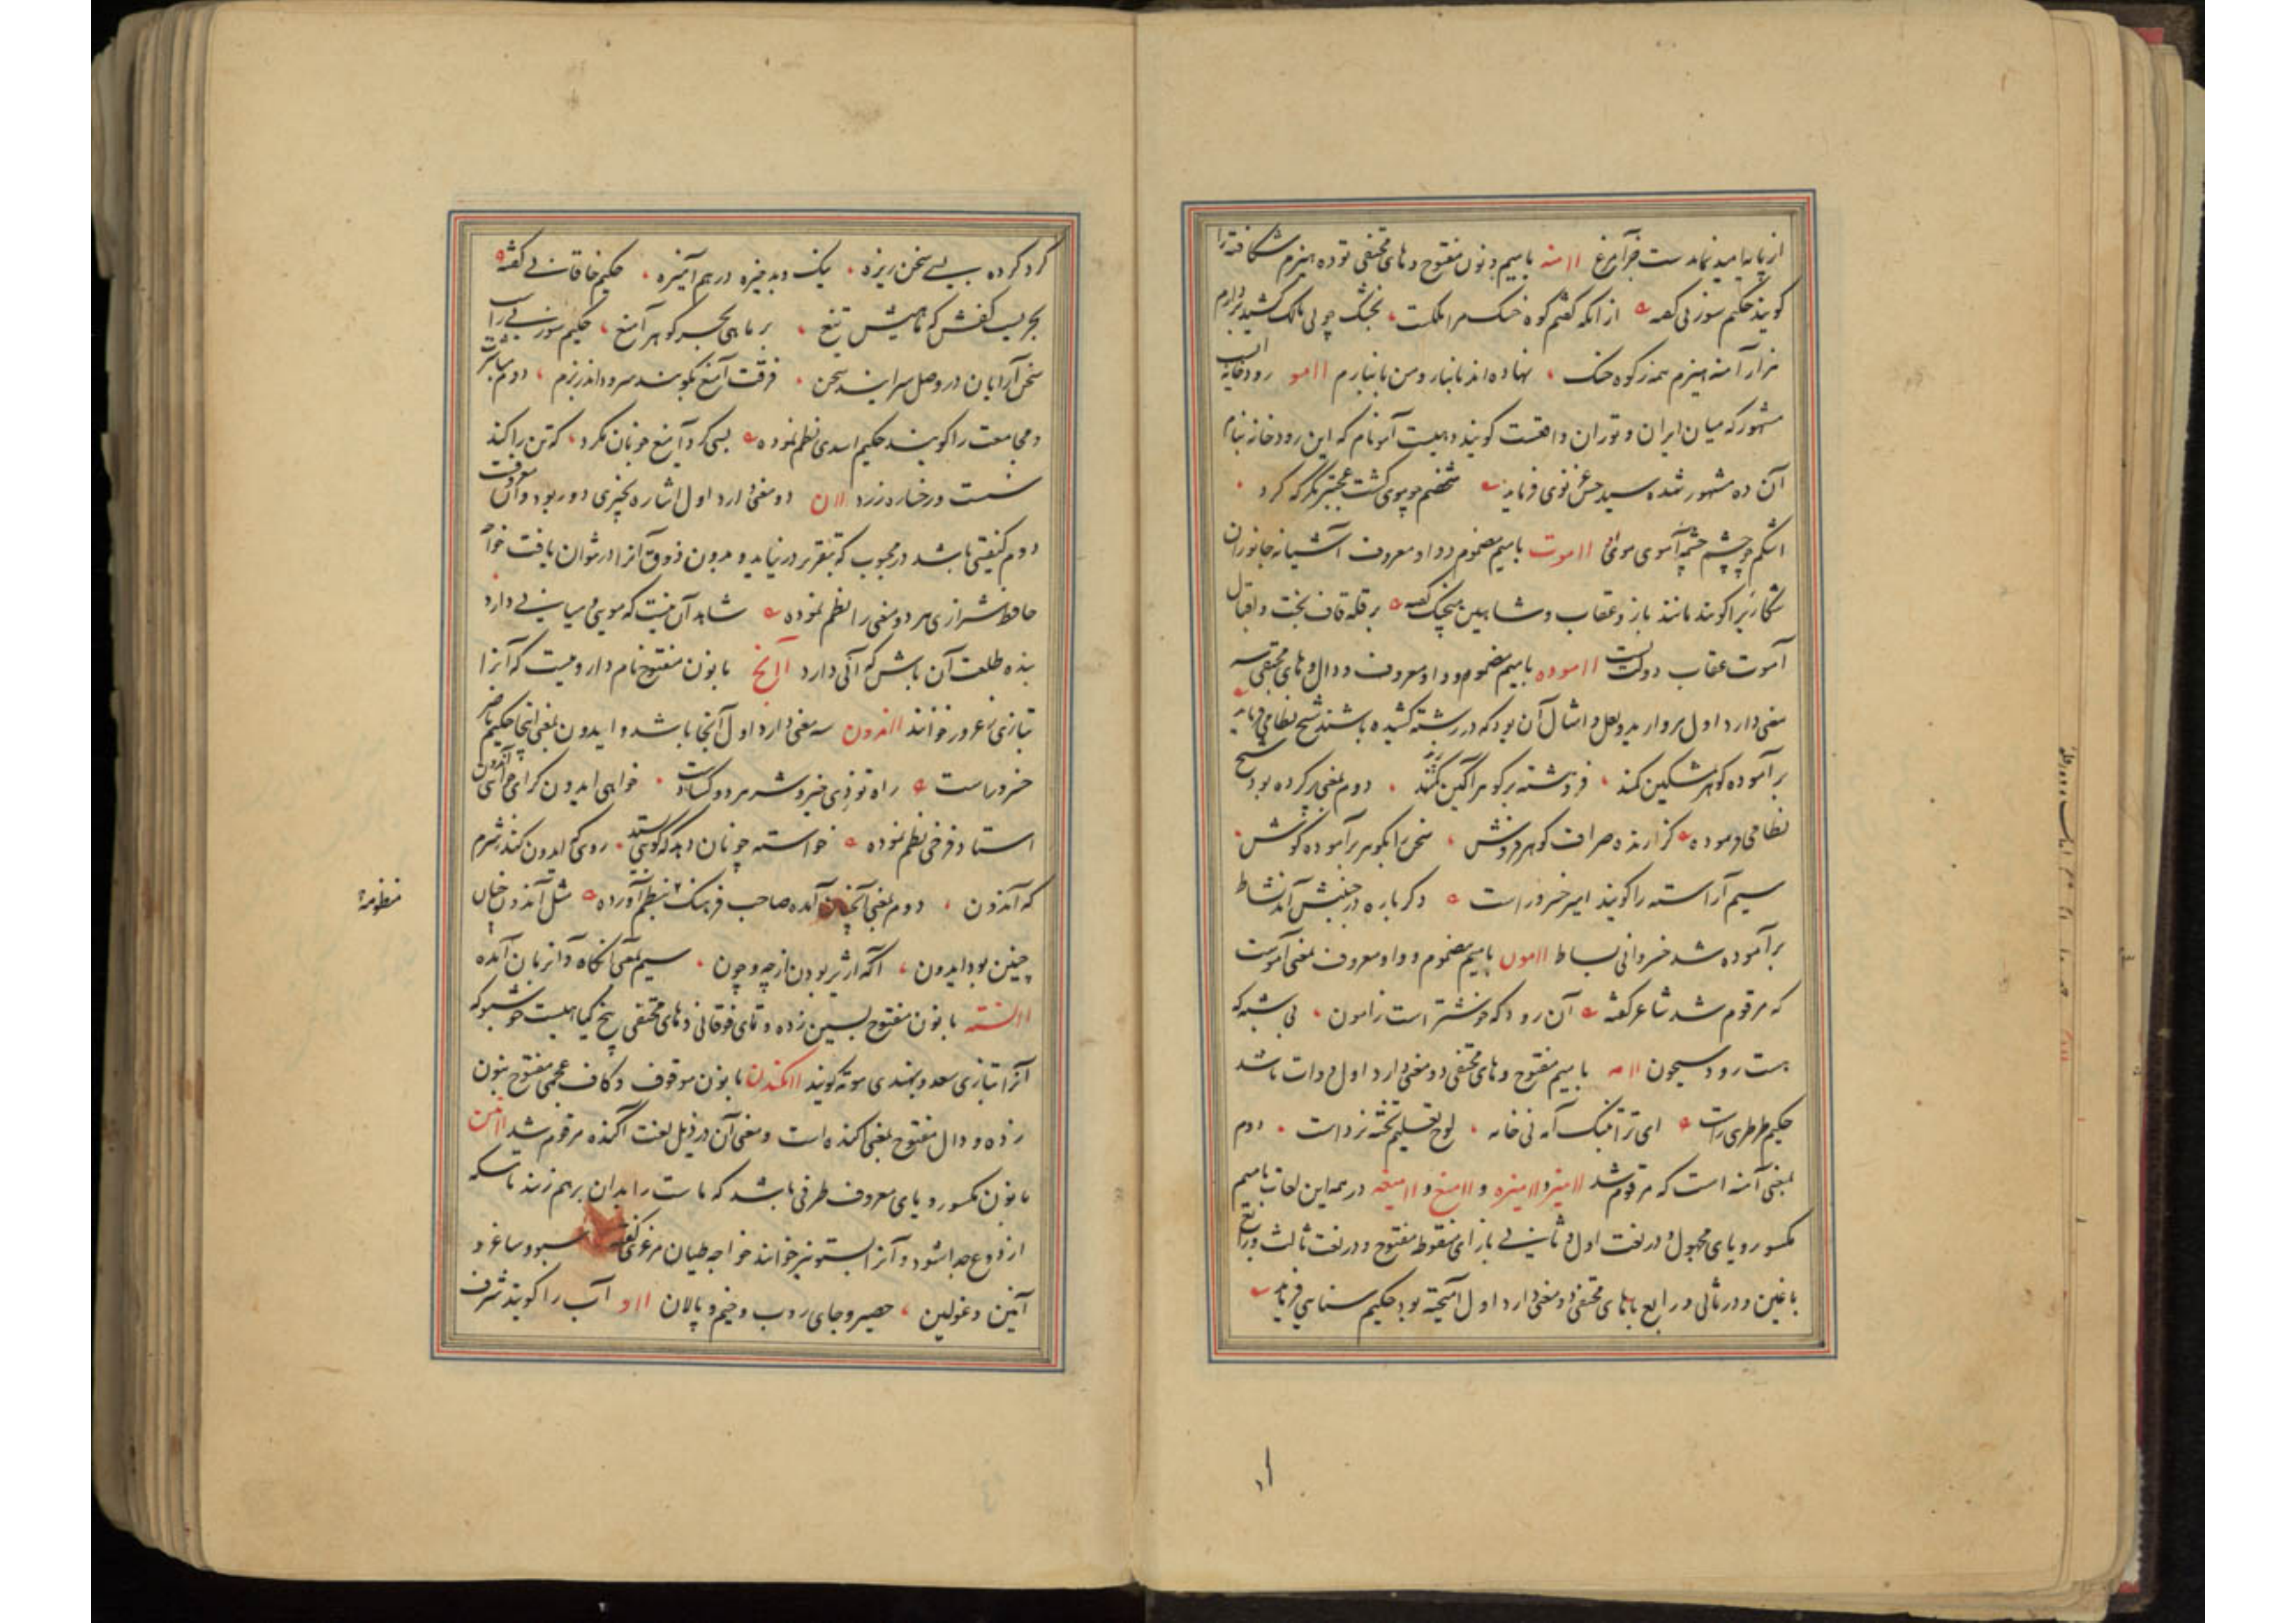 گویند حکیم سوزنی گفته از آنکه گفتم کوه خنک مرا ملکت
هزار آمنه هیزم همه ز کوه خنک نهاده اند بانبار و من بانبارم ااامو رودخانه ایست
مشهور که میان ایران و توران واقعست گویند دهیست آمو نام که این رودخانه بنام
آن ده مشهور شده سید حسن غزنوی فرماید شخصم چو موی گشت
اشکم چو چشم چشمه آموی اااموت با میم مضموم و واو معروف آشیانه جانوران
شکاریرا گویند مانند باز و عقاب و شاهین منجیک گفته بر قله قاف بخت و اقبال
آموت عقاب دولت تست ااموده با میم مضموم و واو معروف و دال و های مختفی سه
معنی دارد اول مروارید و لعل و امثال آن بود که در رشته کشیده باشند شیخ نظامی فرماید
برآموده گوهر بمشکین کمند فروهشته بر گوهرآگین پرند دوم بمعنی پر کرده بود شیخ
نظامی فرموده گزارنده صراف گوهرفروش سخن را بگوهر برآموده گوش
سیم آراسته را گویند امیر خسرو راست دگر باره در جنبش آمد نشاط
برآموده شد خسروانی بساط اامون با میم مضموم و واو معروف بمعنی آموست
که مرقوم شد شاعر گفته آن رود که خوشتر است ز آمون بی شبهه که
هست رود سیحون اامه با میم مفتوح و های مختفی دو معنی دارد اول دوات باشد
حکیم طرطری راست ای ترا تنگ آمه نی خامه لوح تعلیم تخته نرد است دوم
بمعنی آمنه است که مرقوم شد اامیز و اامیزه و اامیغ و اامیغه در همه این لغات با میم
مکسور و یای مجهول و در لغت اول و ثانی با زای منقوطه مفتوح و در لغت ثالث و رابع
با غین و در ثانی و رابع با های مختفی دو معنی دارد اول آمیخته بود حکیم سنایی فرماید
گرد کرده بسی سخن ریزه نیک و بد خیره در هم آمیزه حکیم خاقانی گفته
بحریست کفش که ماهیش تیغ بر ماهی بحر گوهر آمیغ حکیم سوزنی راست
سخن آرایان در وصل سرایند سخن فرقت آمیغ نگویند سرود اندر بزم دوم مباشرت
و مجامعت را گویند حکیم اسدی نظم نموده بسی گرد آمیغ خوبان مگرد که تن را کند
سست و رخساره زرد ااان دو معنی دارد اول اشاره بچیزی دور بود و آن معروفست
دوم کیفیتی باشد در محبوب که بتقریر در نیاید و بدون ذوق آنرا در نتوان یافت خواجه
حافظ شیرازی هر دو معنی را نظم نموده شاهد آن نیست که مویی و میانی دارد
بنده طلعت آن باش که آنی دارد با نون مفتوح نام دارویست که آنرا
بتازی زعرور خوانند ااندون سه معنی دارد اول آنجا باشد و ایدون بمعنی اینجا حکیم ناصر
خسرو راست راه تو زی خیر و شر هر دو گشادست خواهی ایدون گرای خواهی آندون
استاد فرخی نظم نموده خواسته چونان دهد که گویی بستد روی گه ایدون کند ز شرم
که آندون دوم بمعنی آنچنان آمده صاحب فرهنگ منظومه بنظم آورده مثل آندون چنان
چنین بود ایدون آگه از ژیر بودن از چه و چون سیم بمعنی آنگاه و آنزمان آمده
ااانسته با نون مفتوح بسین زده و تای فوقانی و های مختفی بیخ گیاهیست خوشبو که
آنرا بتازی سعد و بهندی موته گویند ااانکندن با نون موقوف و کاف عجمی مفتوح بنون
زده و دال مفتوح بمعنی آکنده است و معنی آن در ذیل لغت آگنده مرقوم شد اانین
با نون مکسور و یای معروف ظرفی باشد که ماست را بدان برهم زنند تا مسکه
از دوغ جدا شود و آنرا بستو نیز خوانند خواجه طیان مرغزی گفته سبو و ساغر و
آنین و غولین حصیر و جای روب و خیم و پالان ااو آب را گویند شرف
منظومه